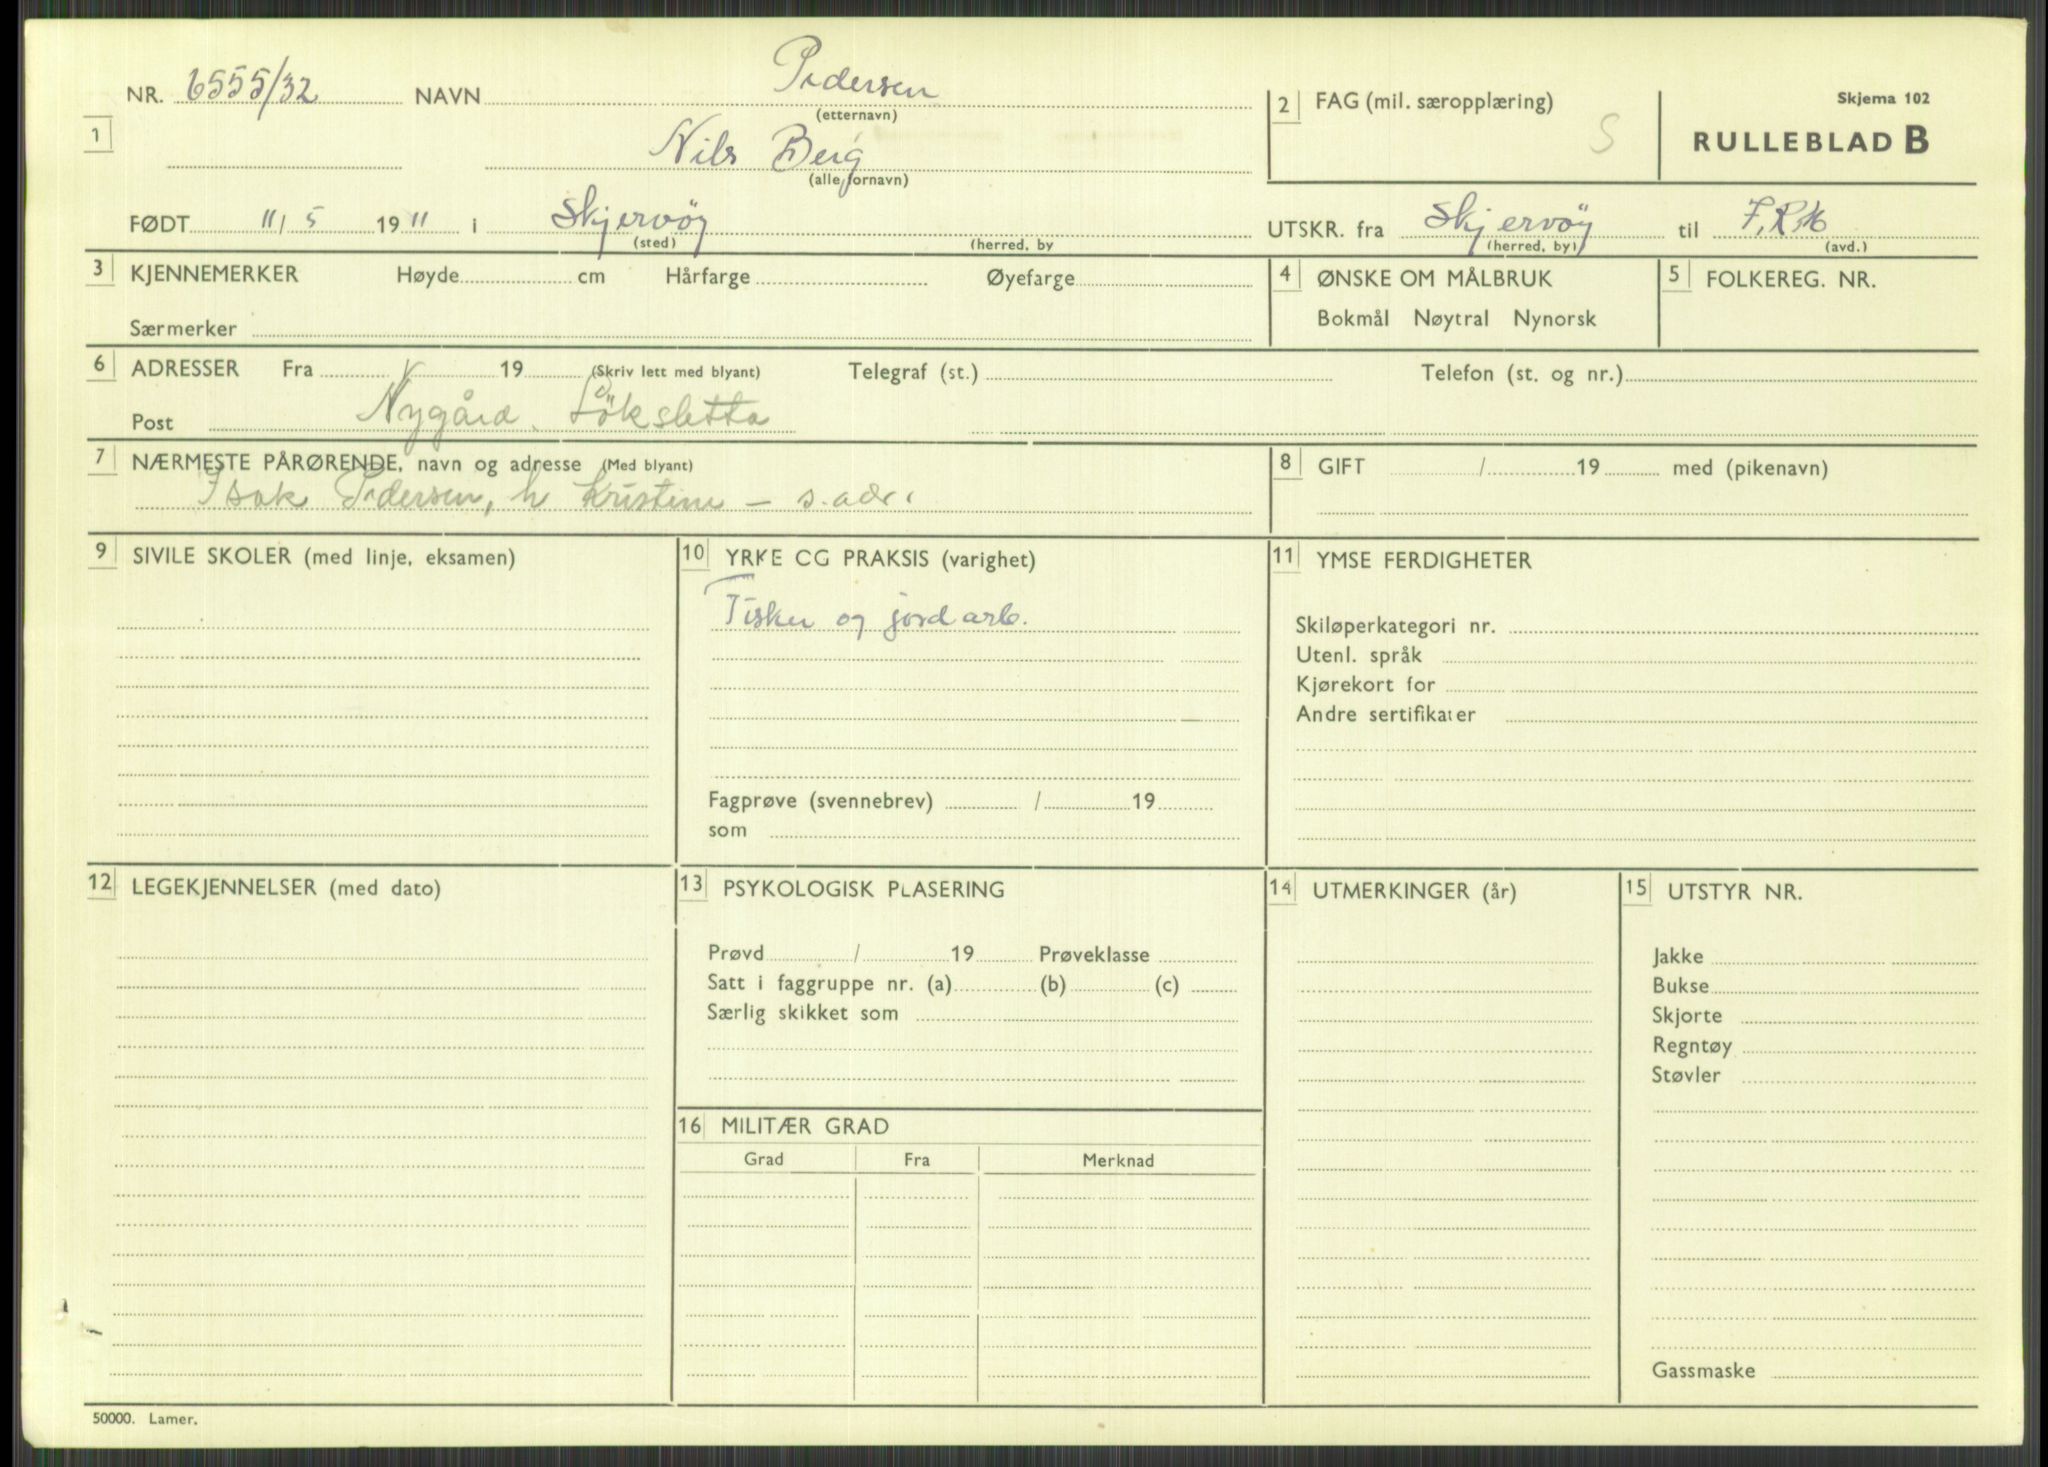 NR. 6555/32 NAVN Pedersen
(etternavn)
1
Nils Berg
(alle fornavn)
FØDT 11/5 1911 i Skjervöy
(sted) (herred, by
2 FAG (mil. særopplæring)
S
Skjema 102
RULLEBLAD B
UTSKR. fra Skjervöy til
(herred, by) (avd.)
3 KJENNEMERKER Høyde cm Hårfarge Øyefarge
Særmerker
4 ØNSKE OM MÅLBRUK
Bokmål Nøytral Nynorsk
5 FOLKEREG. NR.
6 ADRESSER Fra / 19 (Skriv lett med blyant) Telegraf (st.) Telefon (st. og nr.)
Post Nygård. Löksletta
7 NÆRMESTE PÅRØRENDE, navn og adresse (Med blyant)
Isak Pedersen, h Kristine – s. adr.
8 GIFT / 19 med (pikenavn)
9 SIVILE SKOLER (med linje, eksamen)
10 YRKE CG PRAKSIS (varighet)
Fisker og jordarb.
Fagprøve (svennebrev) / 19
som
11 YMSE FERDIGHETER
Skiløperkategori nr.
Utenl. språk
Kjørekort for
Andre sertifikater
12 LEGEKJENNELSER (med dato)
13 PSYKOLOGISK PLASERING
Prøvd / 19 Prøveklasse
Satt i faggruppe nr. (a) (b) (c)
Særlig skikket som
14 UTMERKINGER (år)
15 UTSTYR NR.
Jakke
Bukse
Skjorte
Regntøy
Støvler
Gassmaske
16 MILITÆR GRAD
Grad Fra Merknad
50000. Lamer.